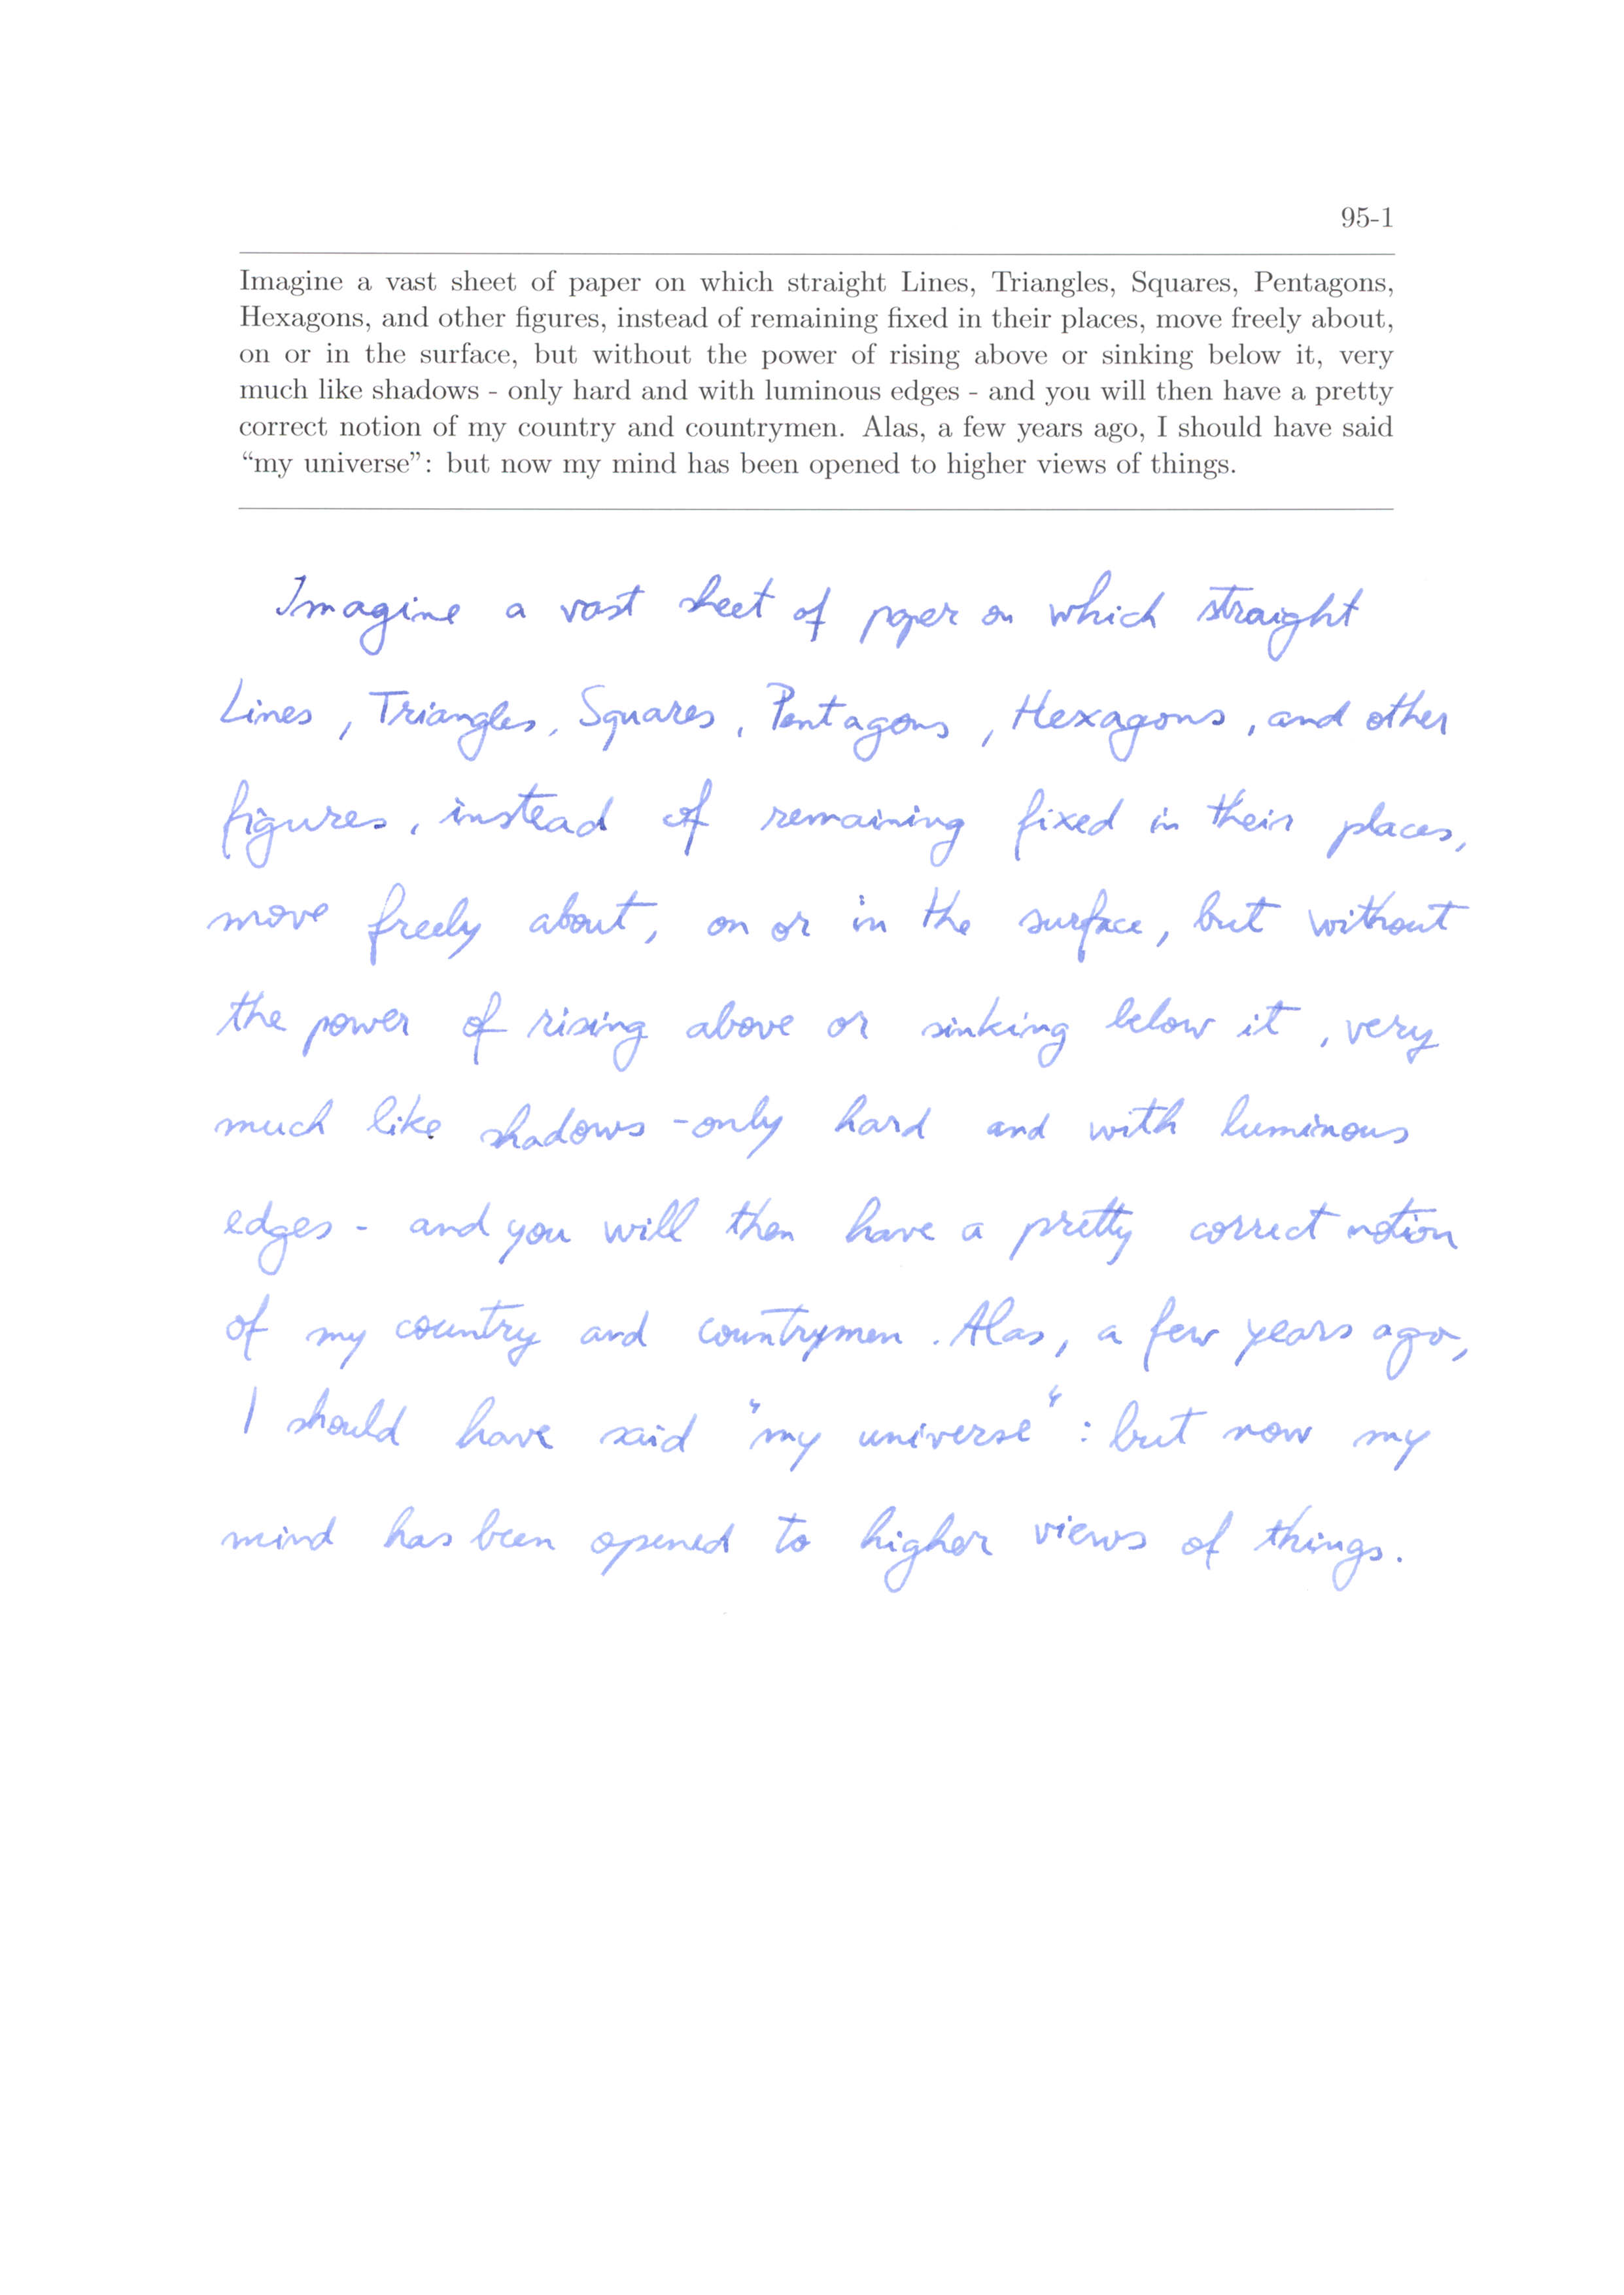 95-1
Imagine a vast sheet of paper on which straight Lines, Triangles, Squares, Pentagons,
Hexagons, and other figures, instead of remaining fixed in their places, move freely about,
on or in the surface, but without the power of rising above or sinking below it, very
much like shadows - only hard and with luminous edges - and you will then have a pretty
correct notion of my country and countrymen. Alas, a few years ago, I should have said
“my universe”: but now my mind has been opened to higher views of things.
Imagine a vast sheet of paper on which straight
Lines, Triangles, Squares, Pentagons, Hexagons, and other
figures, instead of remaining fixed in their places,
move freely about, on or in the surface, but without
the power of rising above or sinking below it, very
much like shadows - only hard and with luminous
edges - and you will then have a pretty correct notion
of my country and countrymen. Alas, a few years ago,
I should have said "my universe": but now my
mind has been opened to higher views of things.